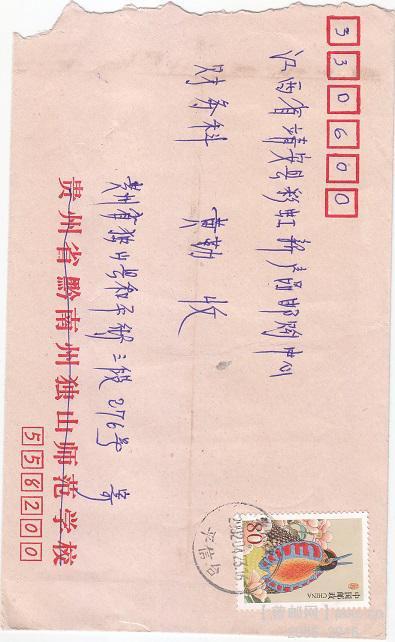 330600
江西省靖安县彩虹新产品邮购中心
财务科 黄勤 收
贵州省独山县和平街三段276号 寄
贵州省黔南州独山师范学校
558200
80
中国邮政
CHINA